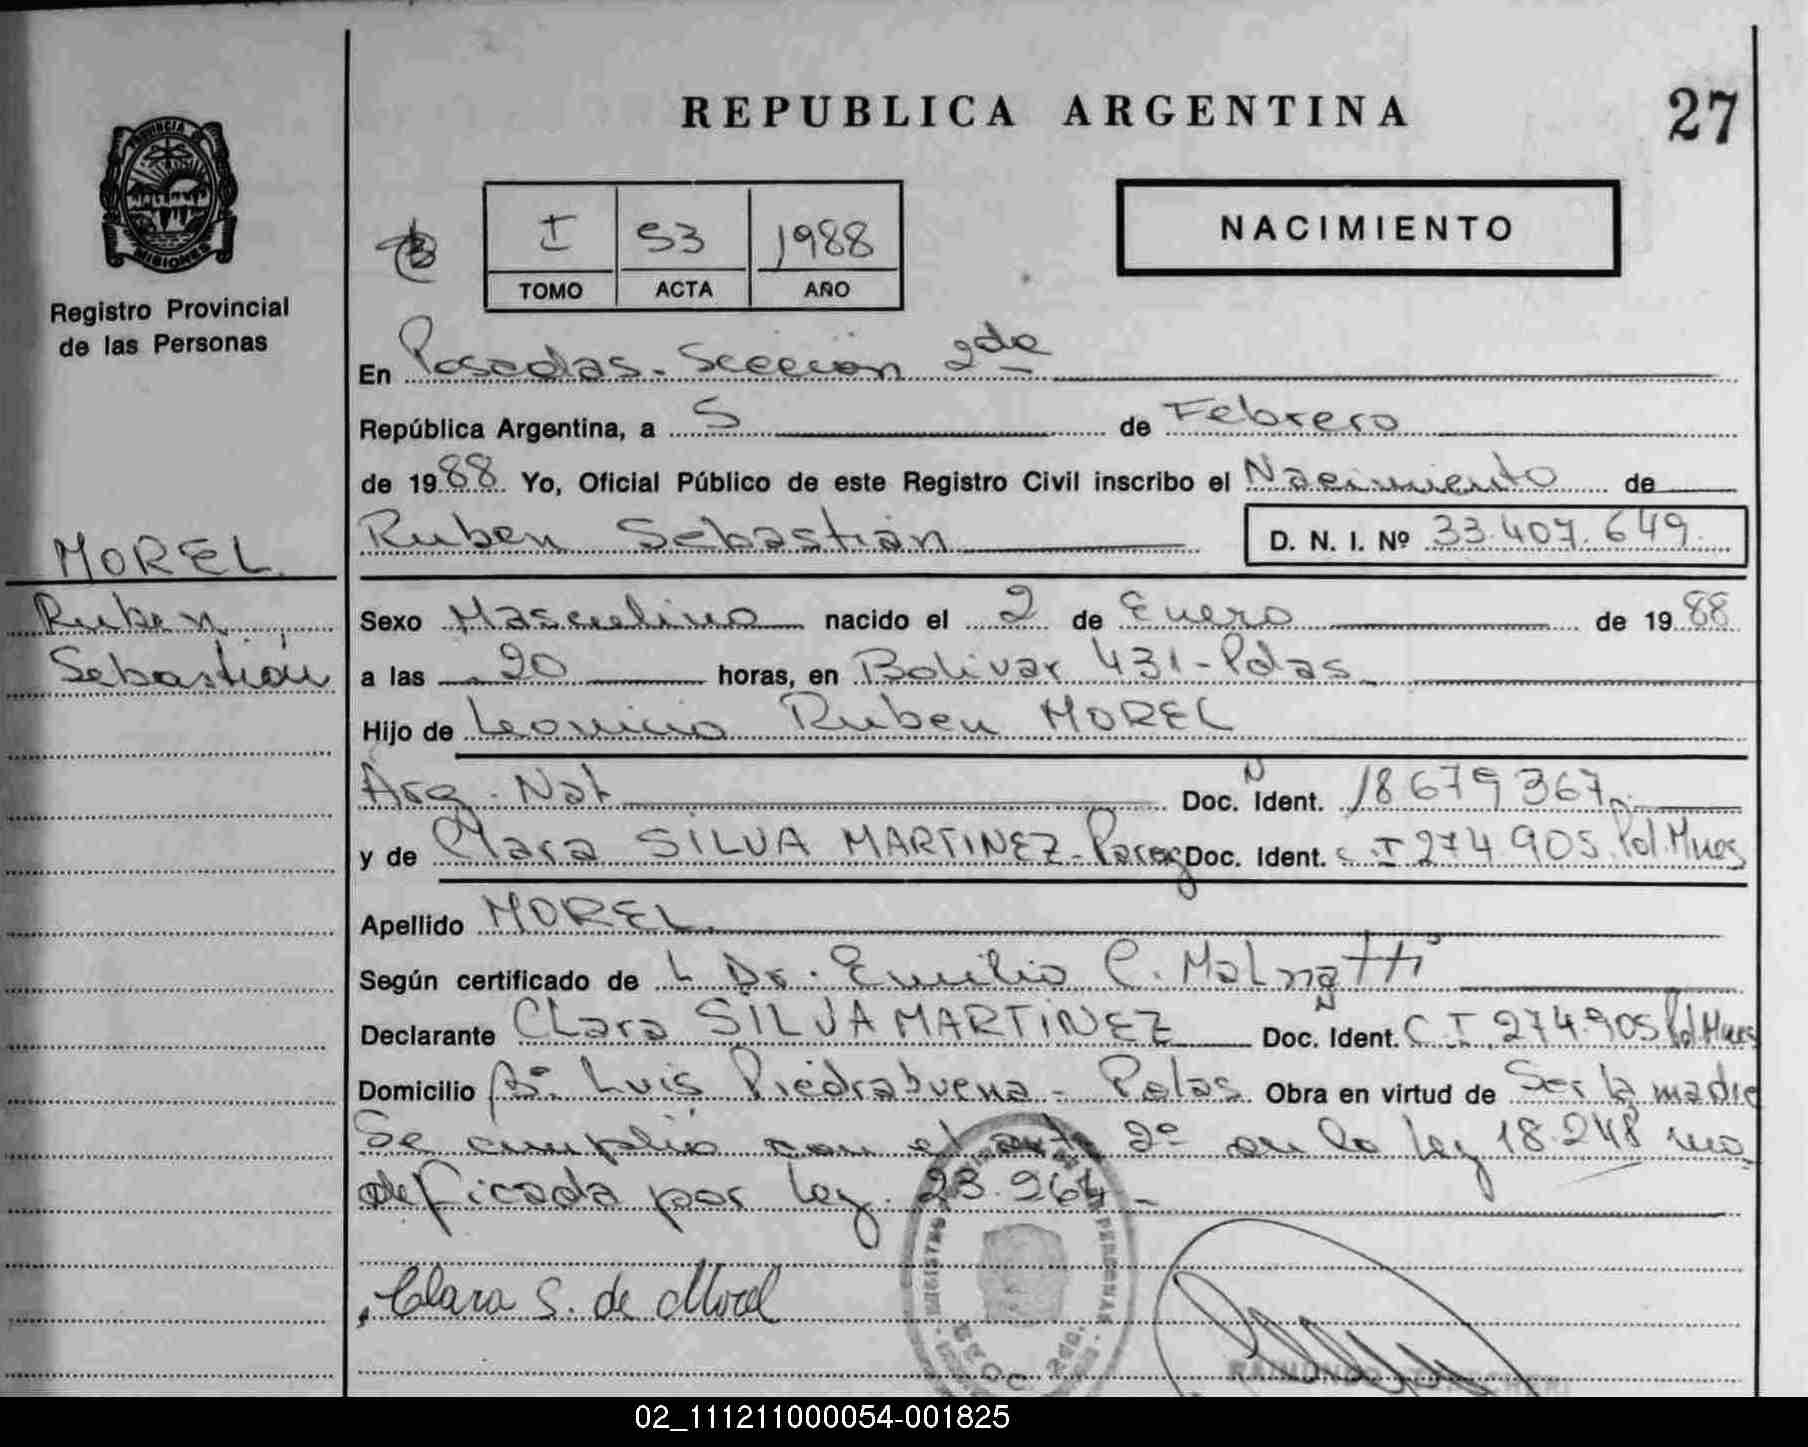 REPUBLICA ARGENTINA
27
PROVINCIA DE
MISIONES
Registro Provincial
de las Personas
I 53 1988
TOMO ACTA AÑO
NACIMIENTO
En Posadas - Sección 2da
República Argentina, a 5 de Febrero
de 1988 Yo, Oficial Público de este Registro Civil inscribo el Nacimiento de
Ruben Sebastián D. N. I. Nº 33.407.649
MOREL
Ruben
Sebastián
Sexo Masculino nacido el 2 de Enero de 1988
a las 20 horas, en Bolivar 431 - Pdas
Hijo de Leonicio Ruben MOREL
Arg. Nat Doc. N Ident. 18679367
y de Clara SILVA MARTINEZ - Parag Doc. Ident. C.I 274905 Pol. Mnes
Apellido MOREL
Según certificado de L Dr. Emilio C. Malnatti
Declarante Clara SILVA MARTINEZ Doc. N Ident. C.I. 274.905 Pol. Mnes
Domicilio Bº Luis Piedrabuena - Pdas. Obra en virtud de Ser la madre
Se cumplió con el arto 2º en la ley 18.248 mo-
deficada por ley. 23.264 -
Clara S. de Morel
02_111211000054-001825